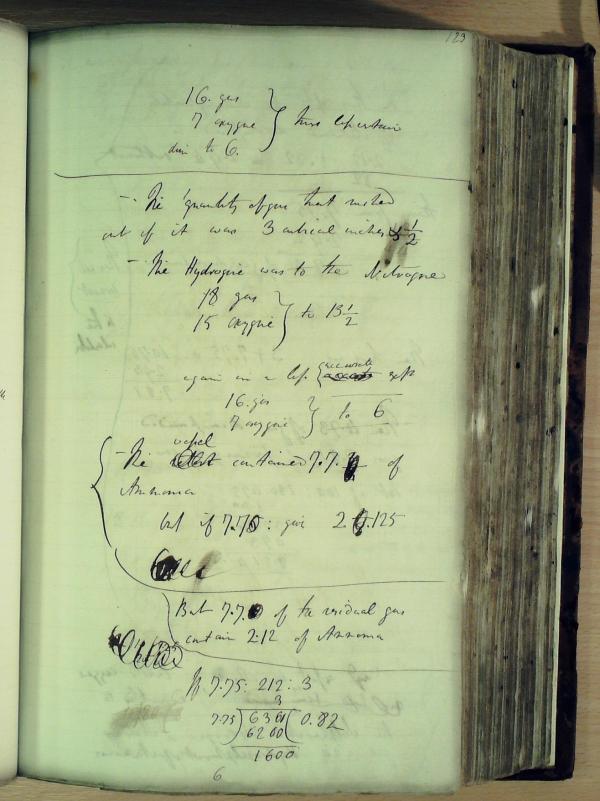 123
16. gas
7 oxygene } this less certain
dim to 6.
— The quantity of gas that rushed
out of it was 3 cubical inches 1/2
— The Hydrogene was to the Nitrogene
18 gas
15 oxygene } to 13 1/2
again in a less accurate expt
16. gas
7 oxygene } to 6
— The vessel contained 7.7. of
Ammonia
but if 7.75: give 2.125
But 7.7. of the residual gas
contain 2.12 of Ammonia
If 7.75: 212: 3
3
7.75)636(0.82
6200
1600
6